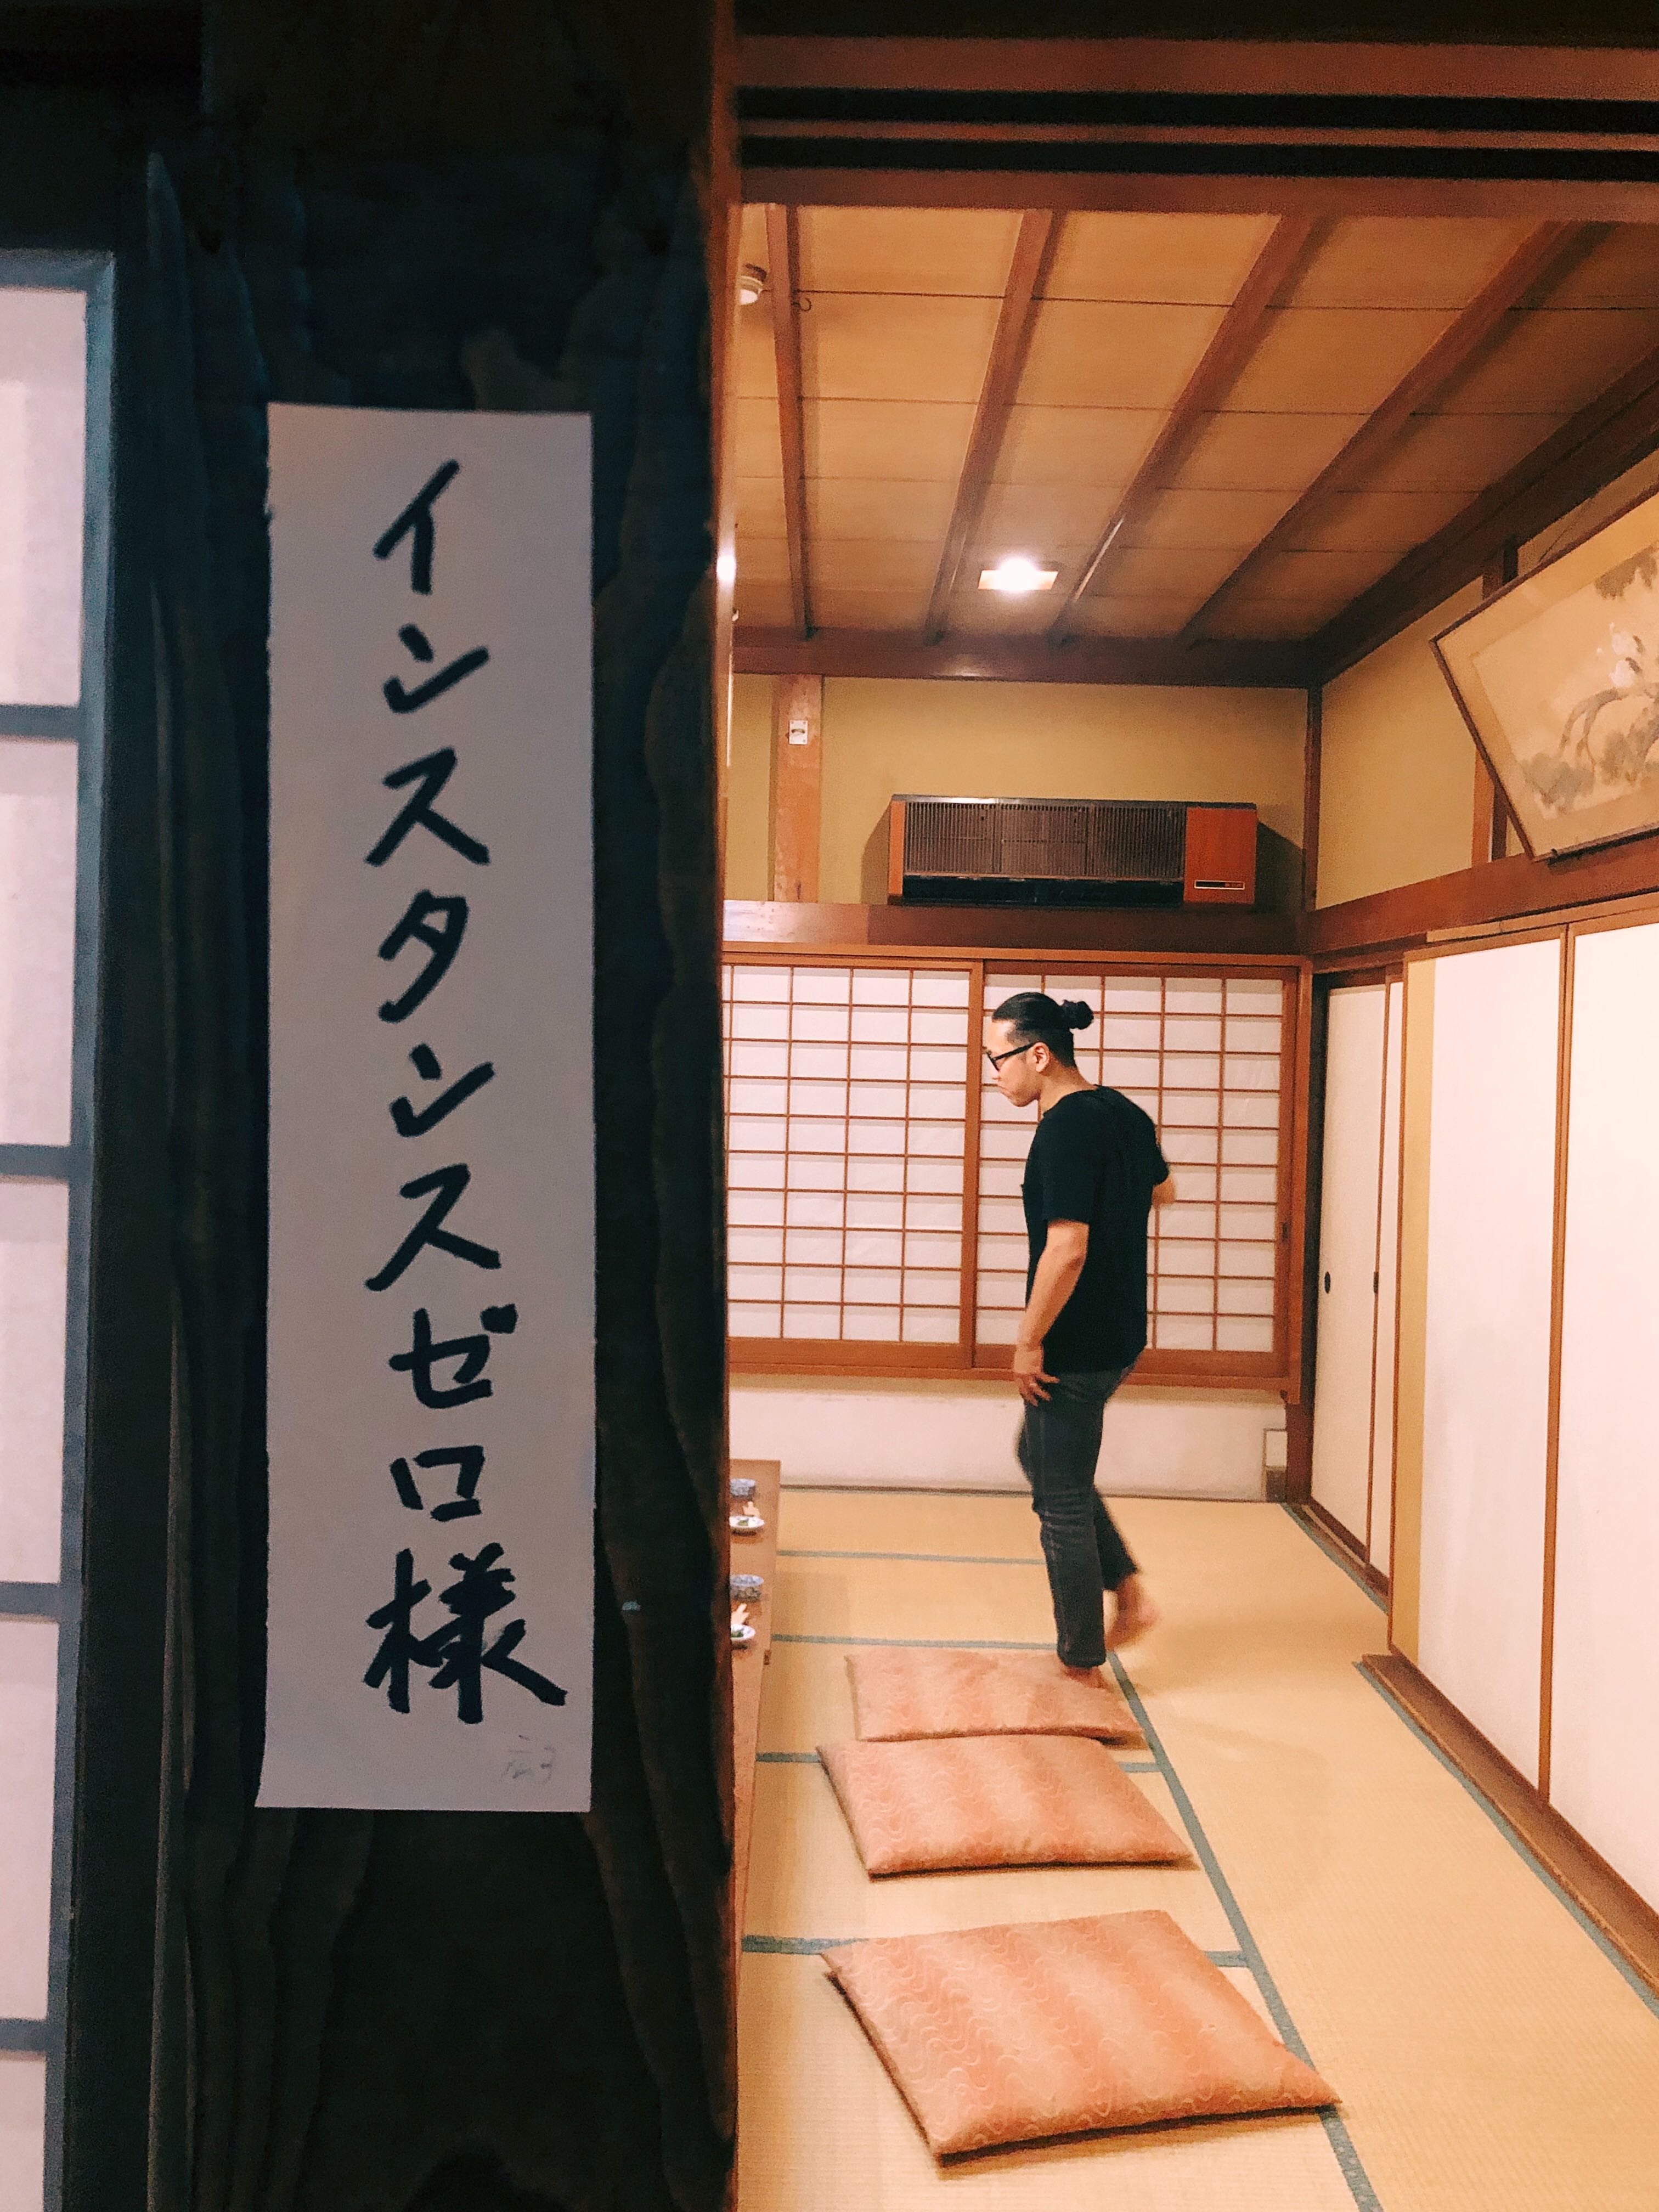 インスタンスゼロ様